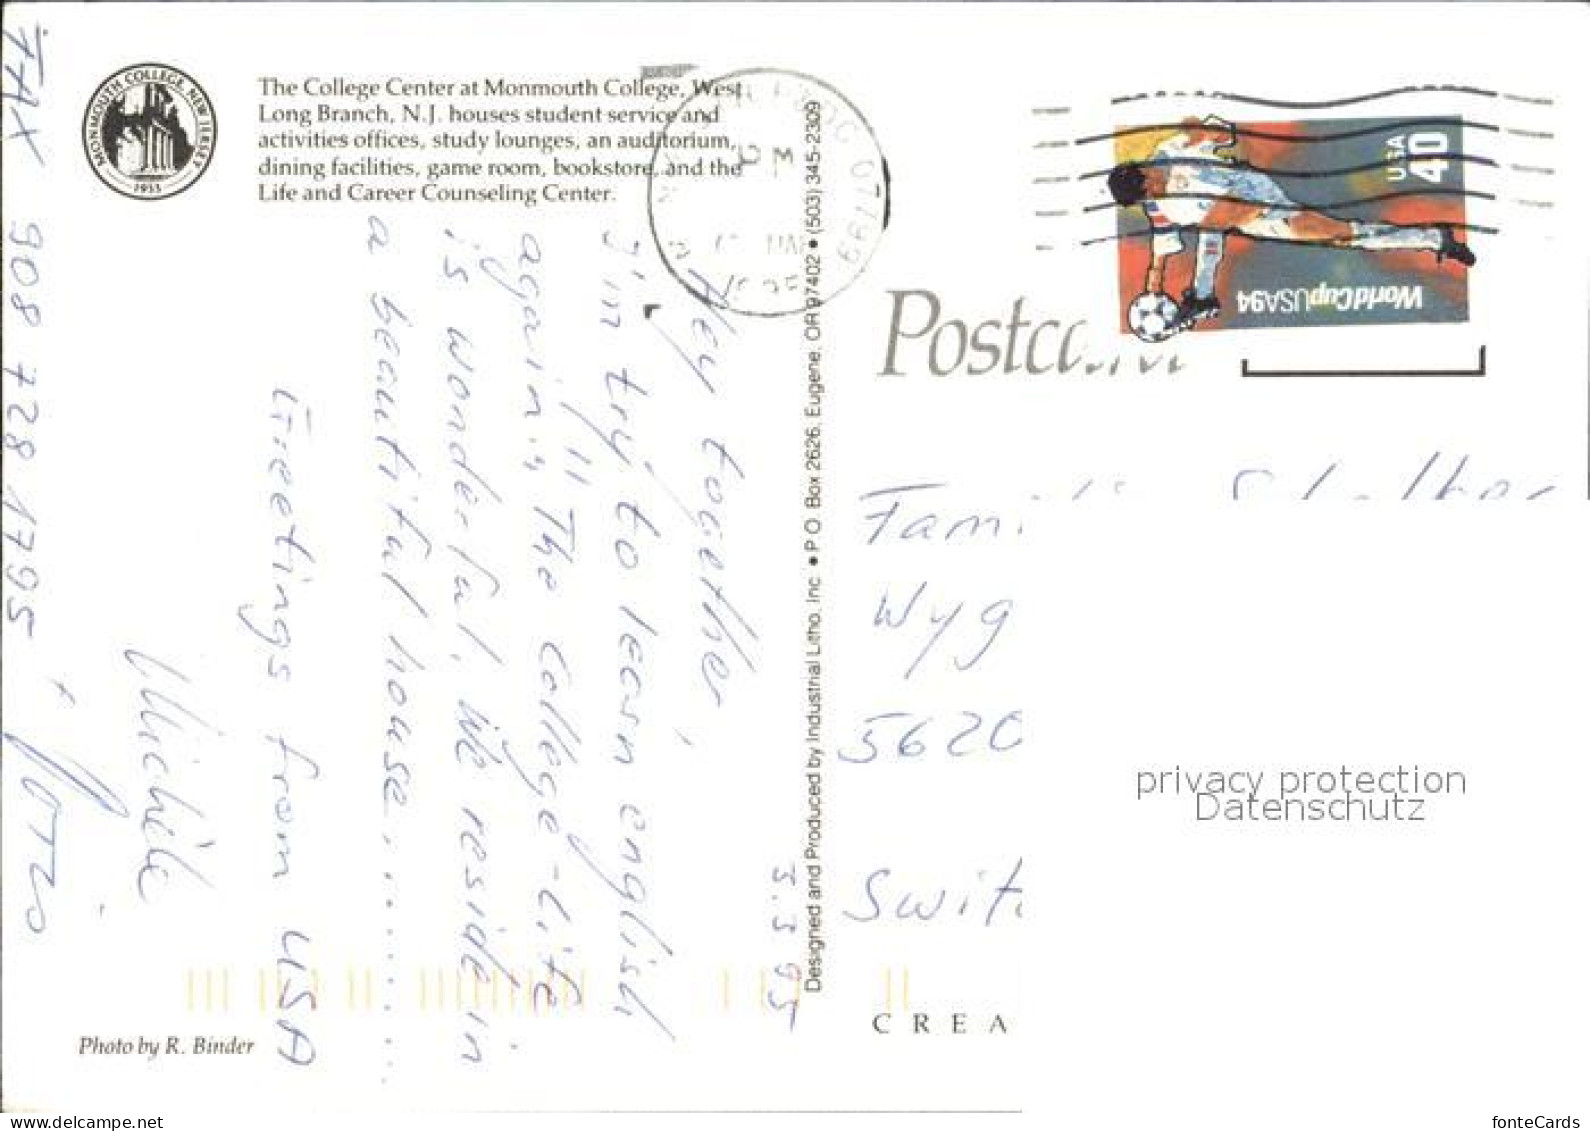 MONMOUTH COLLEGE, NEW JERSEY
1933
The College Center at Monmouth College, West
Long Branch, N.J. houses student service and
activities offices, study lounges, an auditorium,
dining facilities, game room, bookstore, and the
Life and Career Counseling Center.
3.3.95
Hey together,
I'm try to learn english
again !!! The College-Life
is wonderful. We reside in
a beautiful house...........
Greetings from USA
Michèle
+
FAX 908 728 1795
Photo by R. Binder
Designed and Produced by Industrial Litho, Inc. • P.O. Box 2626, Eugene, OR 97402 • (503) 345-2309
077 99
USA
40
WorldCupUSA94
Postca
Fam
Wyg
5620
Swit
CREA
privacy protection
Datenschutz
my.delcampe.net
fonteCards